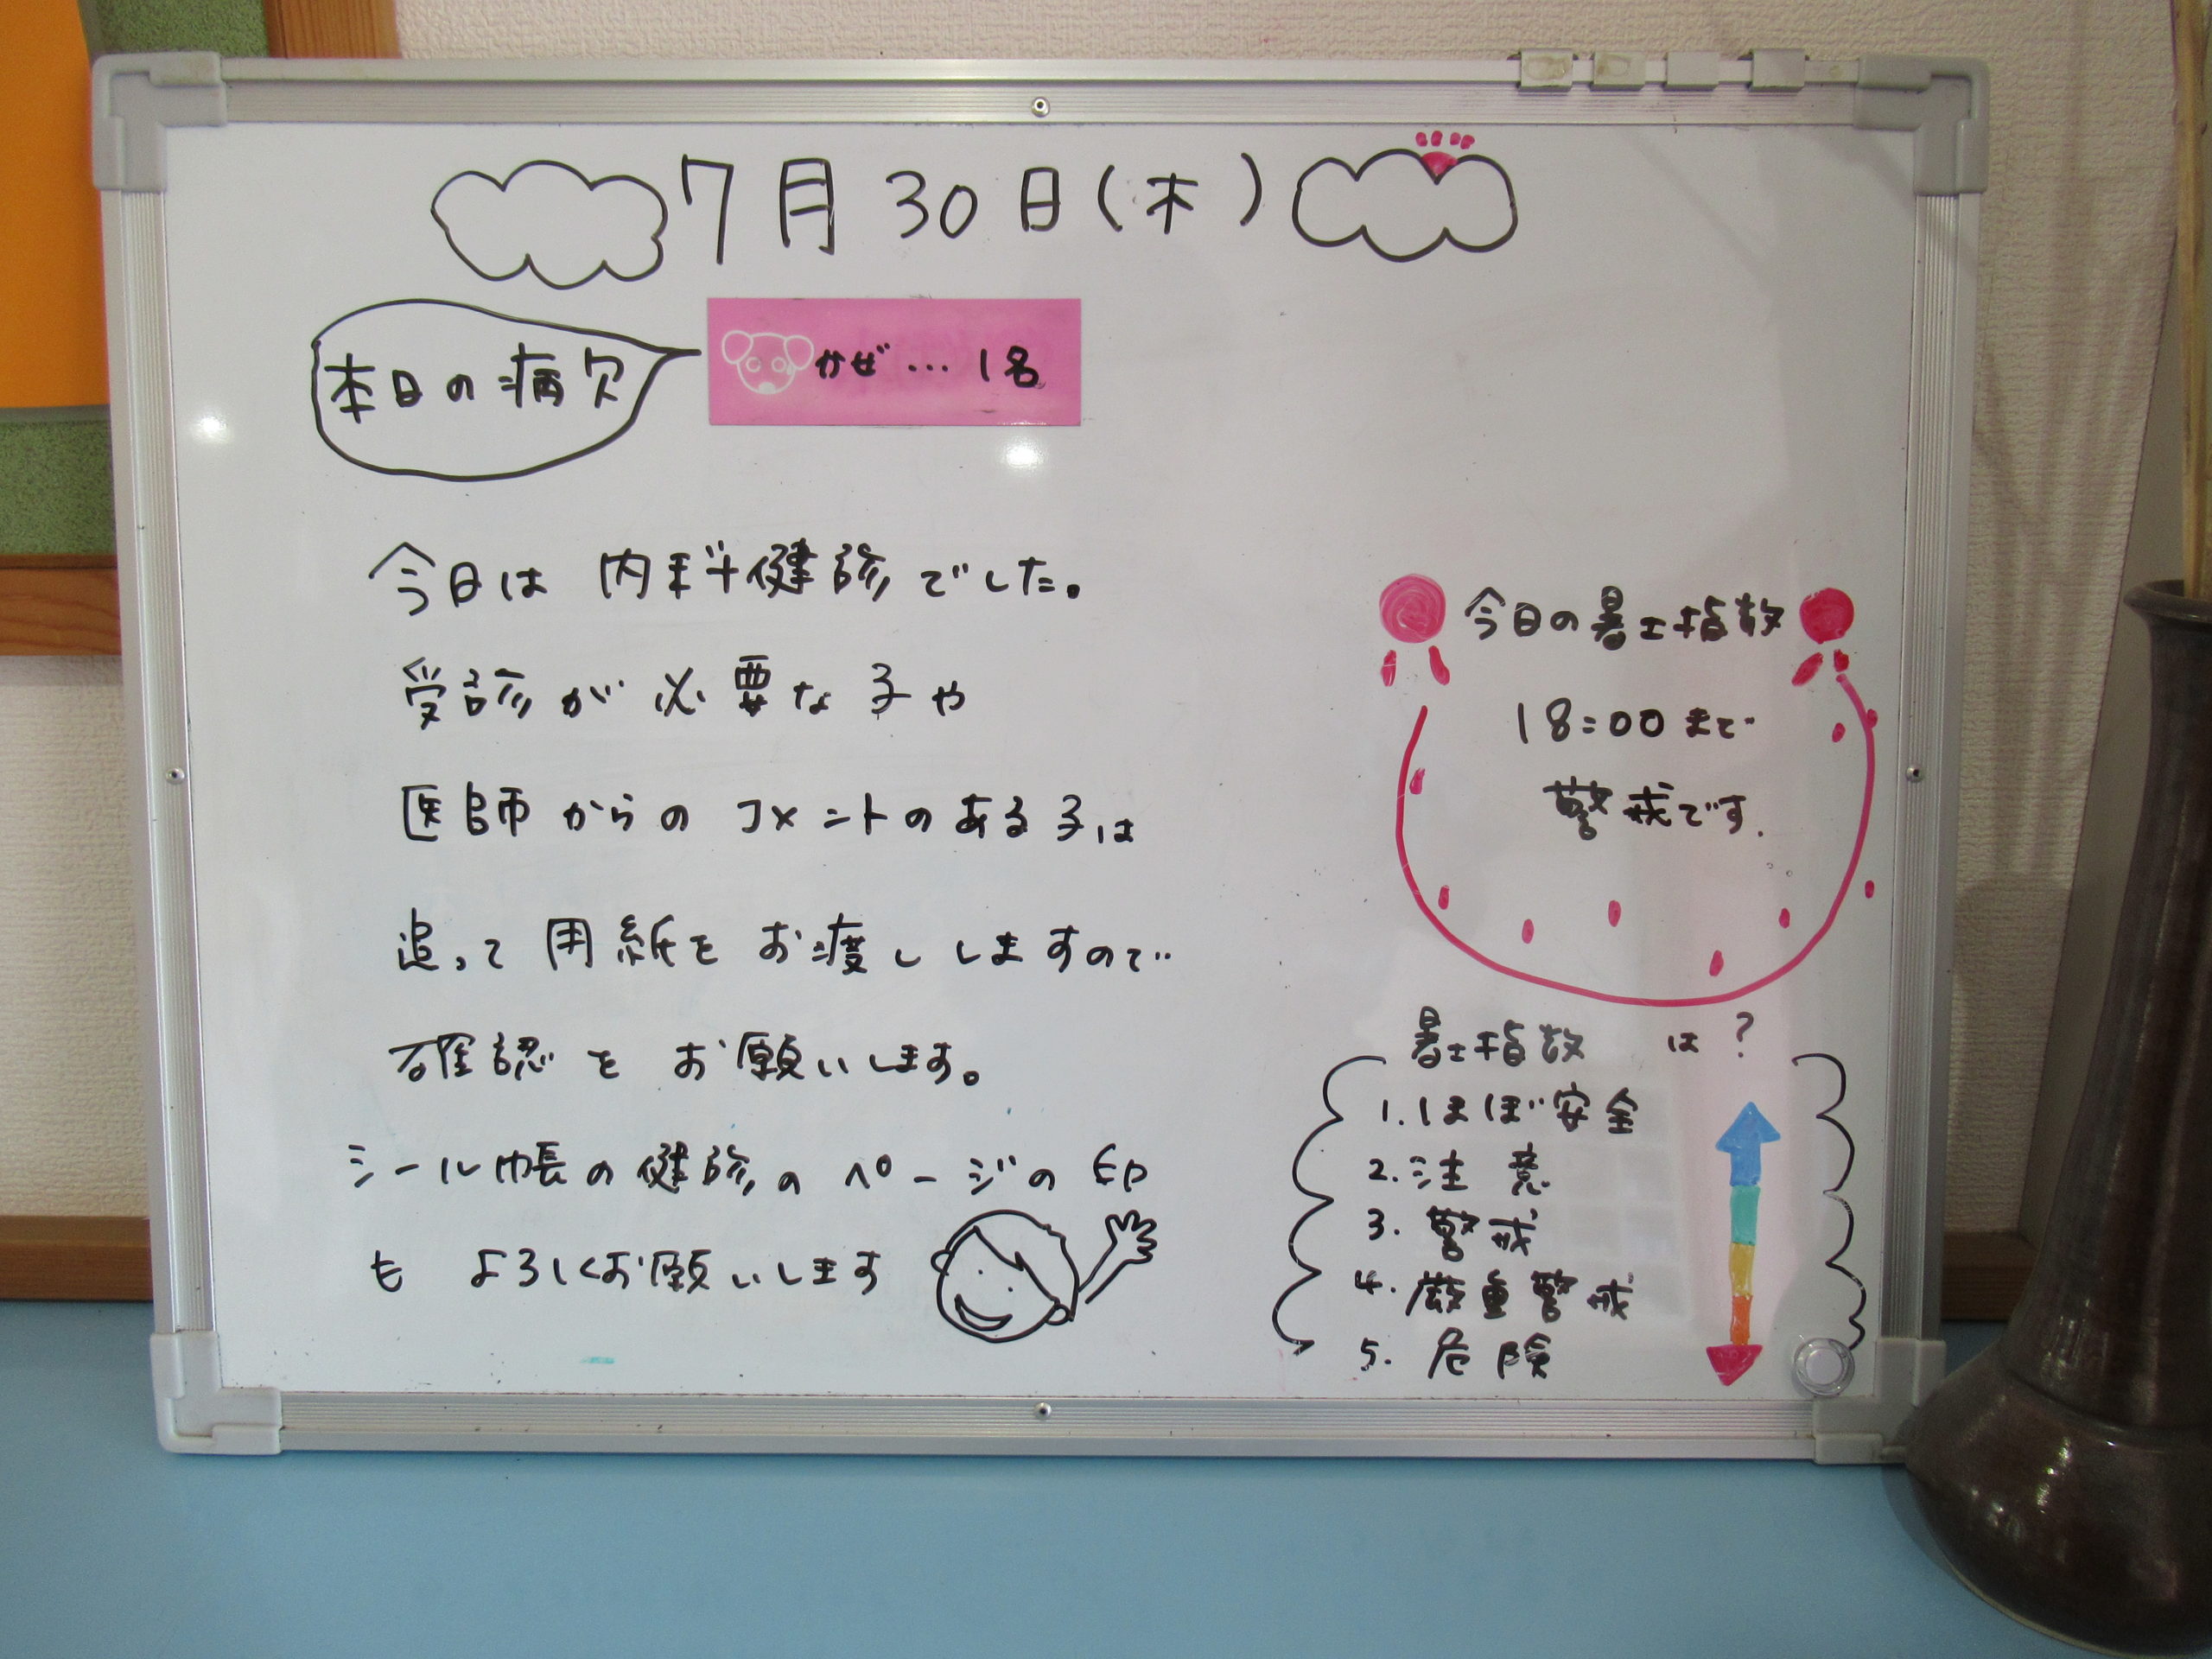 7月30日(木)
本日の病欠
かぜ…1名
今日は 内科健診でした。
受診が必要な子や
医師からのコメントのある子は
追って用紙をお渡ししますので
確認をお願いします。
シール帳の健診のページの印
も よろしくお願いします
今日の暑さ指数
18:00まで
警戒です.
暑さ指数 は?
1.ほぼ安全
2.注意
3.警戒
4.厳重警戒
5.危険